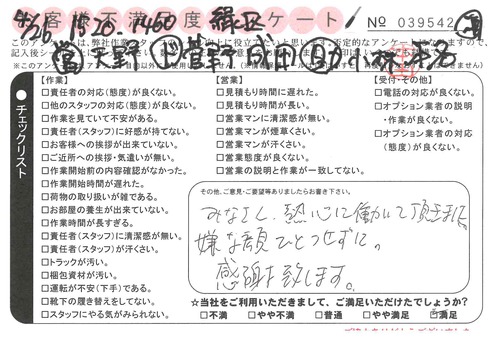 お客様不満足度アンケート!
4/26 15:20 1450 緑区
No 039542
営 天野 菅野 成田
チェックリスト
【作業】
□責任者の対応(態度)が良くない。
□他のスタッフの対応(態度)が良くない。
□作業を見ていて不安がある。
□責任者(スタッフ)に好感が持てない。
□お客様への挨拶が出来ていない。
□ご近所への挨拶・気遣いが無い。
□作業開始前の内容確認がなかった。
□作業開始時間が遅れた。
□荷物の取り扱いが雑である。
□お部屋の養生が出来ていない。
□作業時間が長すぎる。
□責任者(スタッフ)に清潔感が無い。
□責任者(スタッフ)が汗くさい。
□トラックが汚い。
□梱包資材が汚い。
□運転が不安(下手)である。
□靴下の履き替えをしてない。
□スタッフにやる気がみられない。
【営業】
□見積もり時間に遅れた。
□見積もり時間が長い。
□営業マンに清潔感が無い。
□営業マンが煙草くさい。
□営業マンが汗くさい。
□営業態度が良くない。
□営業の説明と作業が一致してない。
【受付・その他】
□電話の対応が良くない。
□オプション業者の説明・作業が良くない。
□オプション業者の対応(態度)が良くない。
その他、ご意見・ご要望等ありましたらお書き下さい。
みなさん、熱心に働いて頂きました。
嫌な顔ひとつせずに。
感謝致します。
☆当社をご利用いただきまして、ご満足いただけたでしょうか?
□不満 □やや不満 □普通 □やや満足 □満足